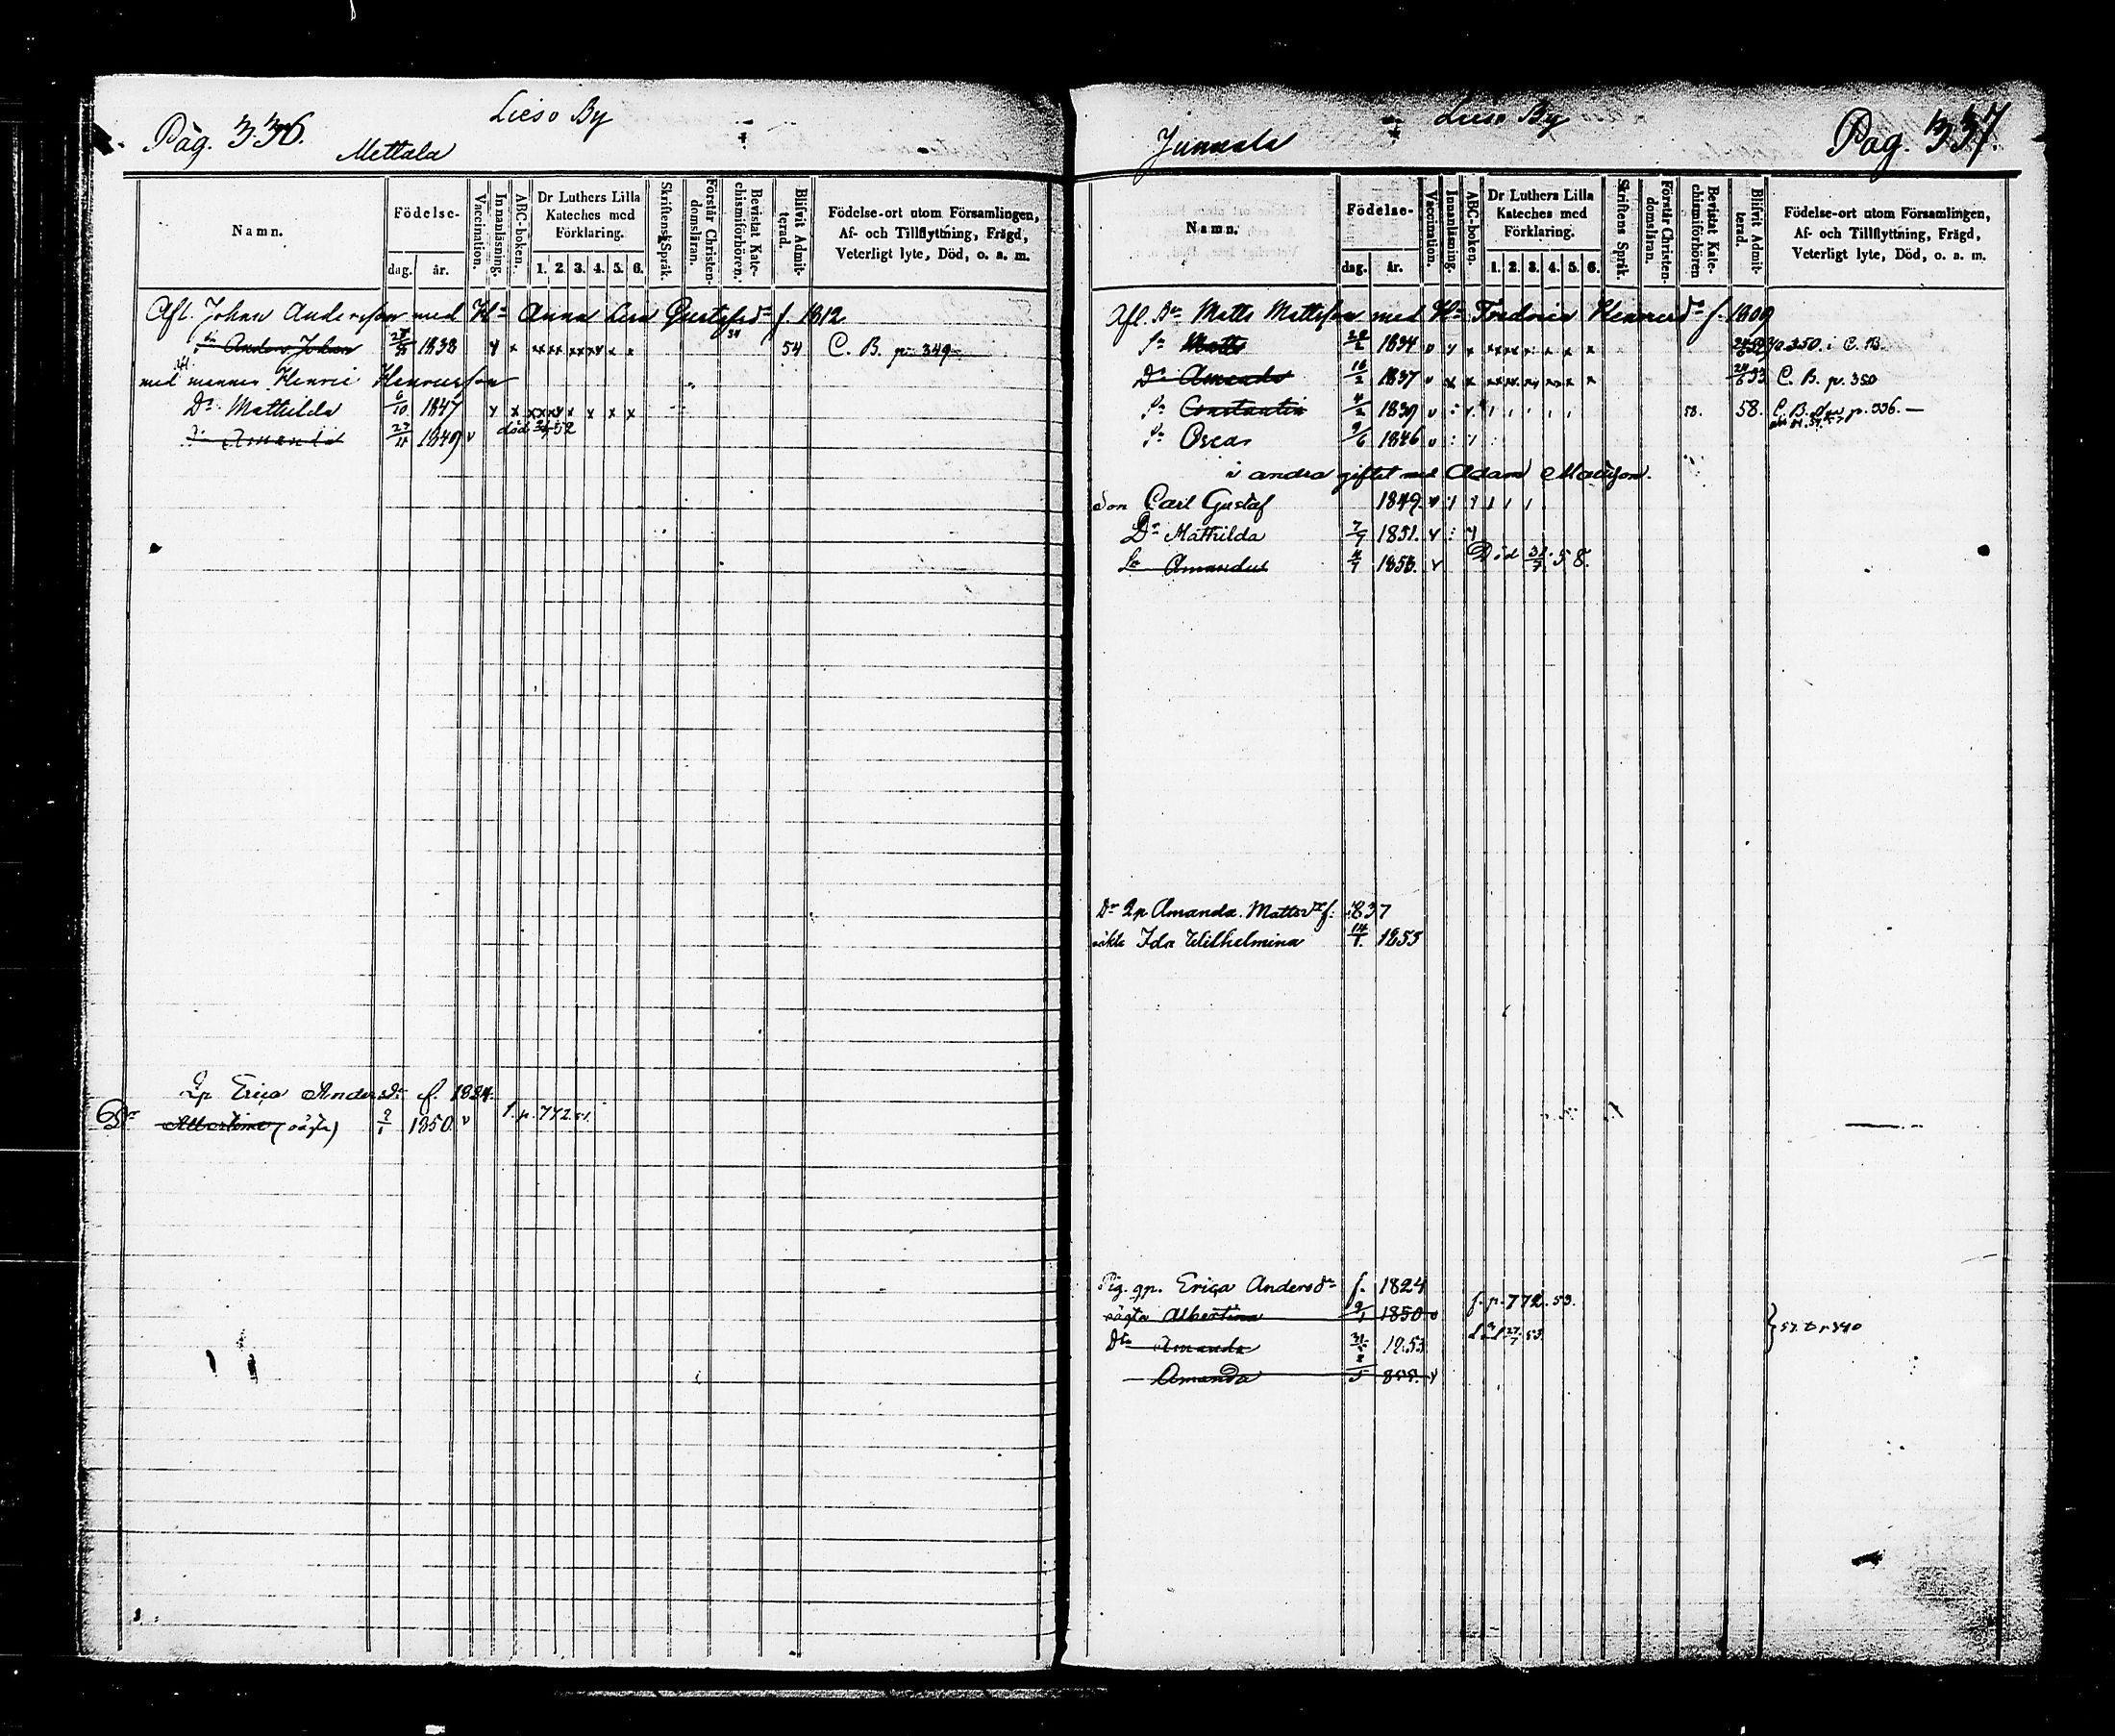 Pag. 336.
Lieso By
Mettala
Namn.
Födelse-
dag. år.
Vaccination.
Innanläsning.
ABC-boken.
Dr Luthers Lilla Kateches med Förklaring.
1. 2. 3. 4. 5. 6.
Skriftens Språk.
Förstår Christendomsläran.
Bevistat Katechismiförhören.
Blifvit Admitterad.
Födelse-ort utom Församlingen,
Af- och Tillflyttning, Frägd,
Veterligt lyte, Död, o. a. m.
Afl. Johan Andersson med H:u Anna Lisa Gustafsdr f. 1812
Sn Anders Johan 1838 v x xx xx xxx x x 54 C. B. p. 349
med mannen Henric Henricsson
Dr Mathilda 6/10 1847 v x xxxx x x x x
Amanda 1849 v död 52
Lp Erica Andersdr f. 1824.
Dr Albertina (oägta) 2/1 1850. v f. p. 772. 51.
Lieso By
Junnala
Pag. 337.
Namn.
Födelse-
dag. år.
Vaccination.
Innanläsning.
ABC-boken.
Dr Luthers Lilla Kateches med Förklaring.
1. 2. 3. 4. 5. 6.
Skriftens Språk.
Förstår Christendomsläran.
Bevistat Katechismiförhören
Blifvit Admitterad.
Födelse-ort utom Församlingen,
Af- och Tillflyttning, Frägd,
Veterligt lyte, Död, o. a. m.
Afl. Bn Matts Mattsson med H:u Fredrica Henricsdr f. 1809
Sn Matts 1834 p. 350. i C. B.
Dr Amanda 16/2 1837 53 C. B. p. 350
Sn Constantin 4/2 1839 58. 58. C. B. p. 336. —
Sn Oscar 9/6 1846
i andra giftet med Adam Matsson.
Son Carl Gustaf 1849. v
Dr Mathilda 1851. v
Sn Amandus 1853. v Död 31/7. 58.
Dr Qp. Amanda Mattsdr f. 1837
oäkta Ida Wilhelmina 14/1. 1855
Pig. qp. Erica Andersdr f. 1824
oägta Albertina 1850 v f. p. 772. 53.
Dto Amanda 1853
Amanda 855. v